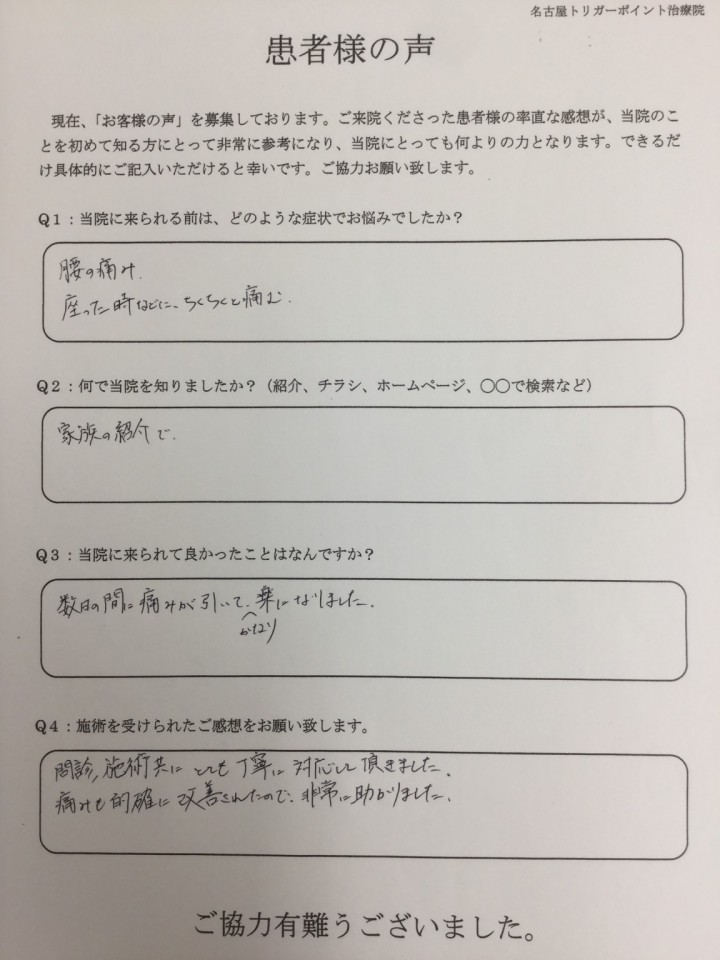 名古屋トリガーポイント治療院
患者様の声
現在、「お客様の声」を募集しております。ご来院くださった患者様の率直な感想が、当院のこ
とを初めて知る方にとって非常に参考になり、当院にとっても何よりの力となります。できるだ
け具体的にご記入いただけると幸いです。ご協力お願い致します。
Q1：当院に来られる前は、どのような症状でお悩みでしたか？
腰の痛み.
座った時などに、ちくちくと痛む.
Q2：何で当院を知りましたか？（紹介、チラシ、ホームページ、〇〇で検索など）
家族の紹介で.
Q3：当院に来られて良かったことはなんですか？
数日の間に痛みが引いて、楽になりました.
かなり
Q4：施術を受けられたご感想をお願い致します。
問診,施術共にとても丁寧に対応して頂きました.
痛みも的確に改善されたので、非常に助かりました.
ご協力有難うございました。